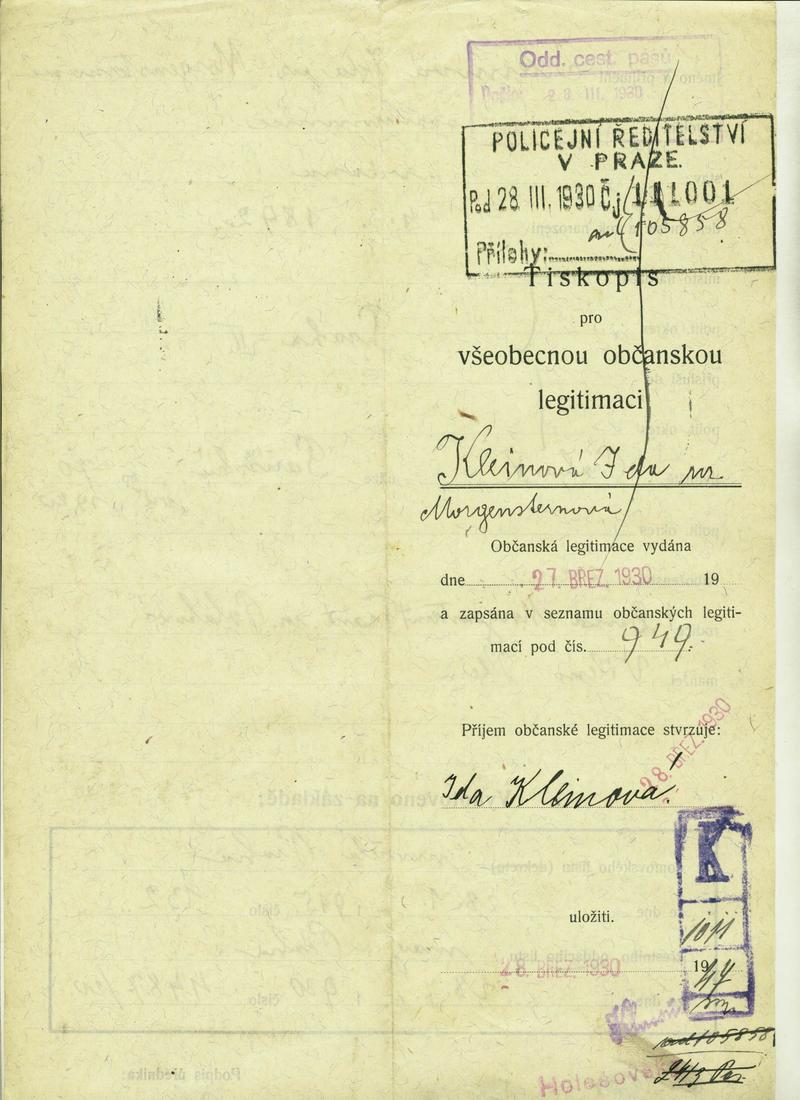 Odd. cest. pasů
Došlo: 28. III. 1930
POLICEJNÍ ŘEDITELSTVÍ
V PRAZE.
Pod 28. III. 1930 Čj 111001
105858
Přílohy:
Tiskopis
pro
všeobecnou občanskou
legitimaci
Kleinová Ida nr.
Morgensternová
Občanská legitimace vydána
dne 27. BŘEZ. 1930 19
a zapsána v seznamu občanských legiti-
mací pod čís. 949.
Příjem občanské legitimace stvrzuje:
28. BŘEZ. 1930
Ida Kleinová
K
uložiti.
1011
28. BŘEZ. 1930 19
47
ad 105858
Holešovs